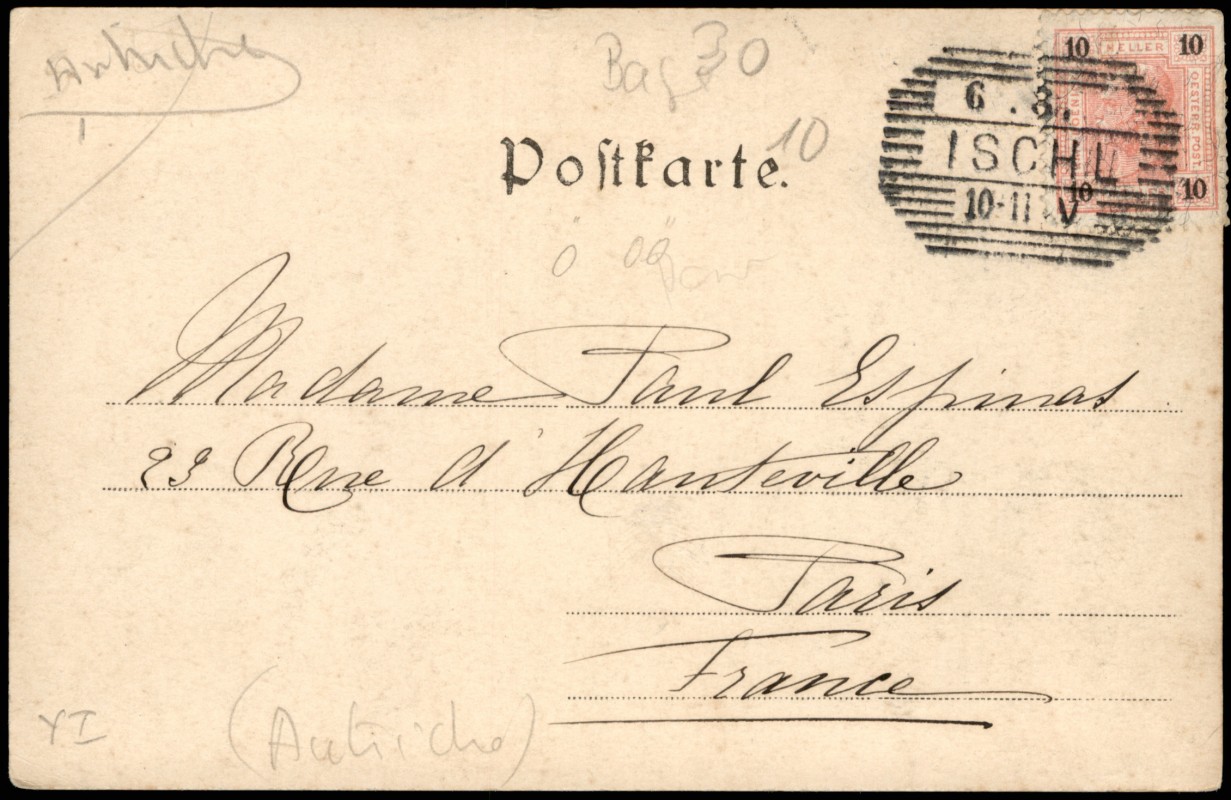 Autriche
Bag 30
10
Postkarte.
10 HELLER 10
OESTERR. POST
10 10
6.8.
ISCHL
10-11 V
Madame Paul Espinas
23 Rue d'Hauteville
Paris
France
XI
(Autriche)